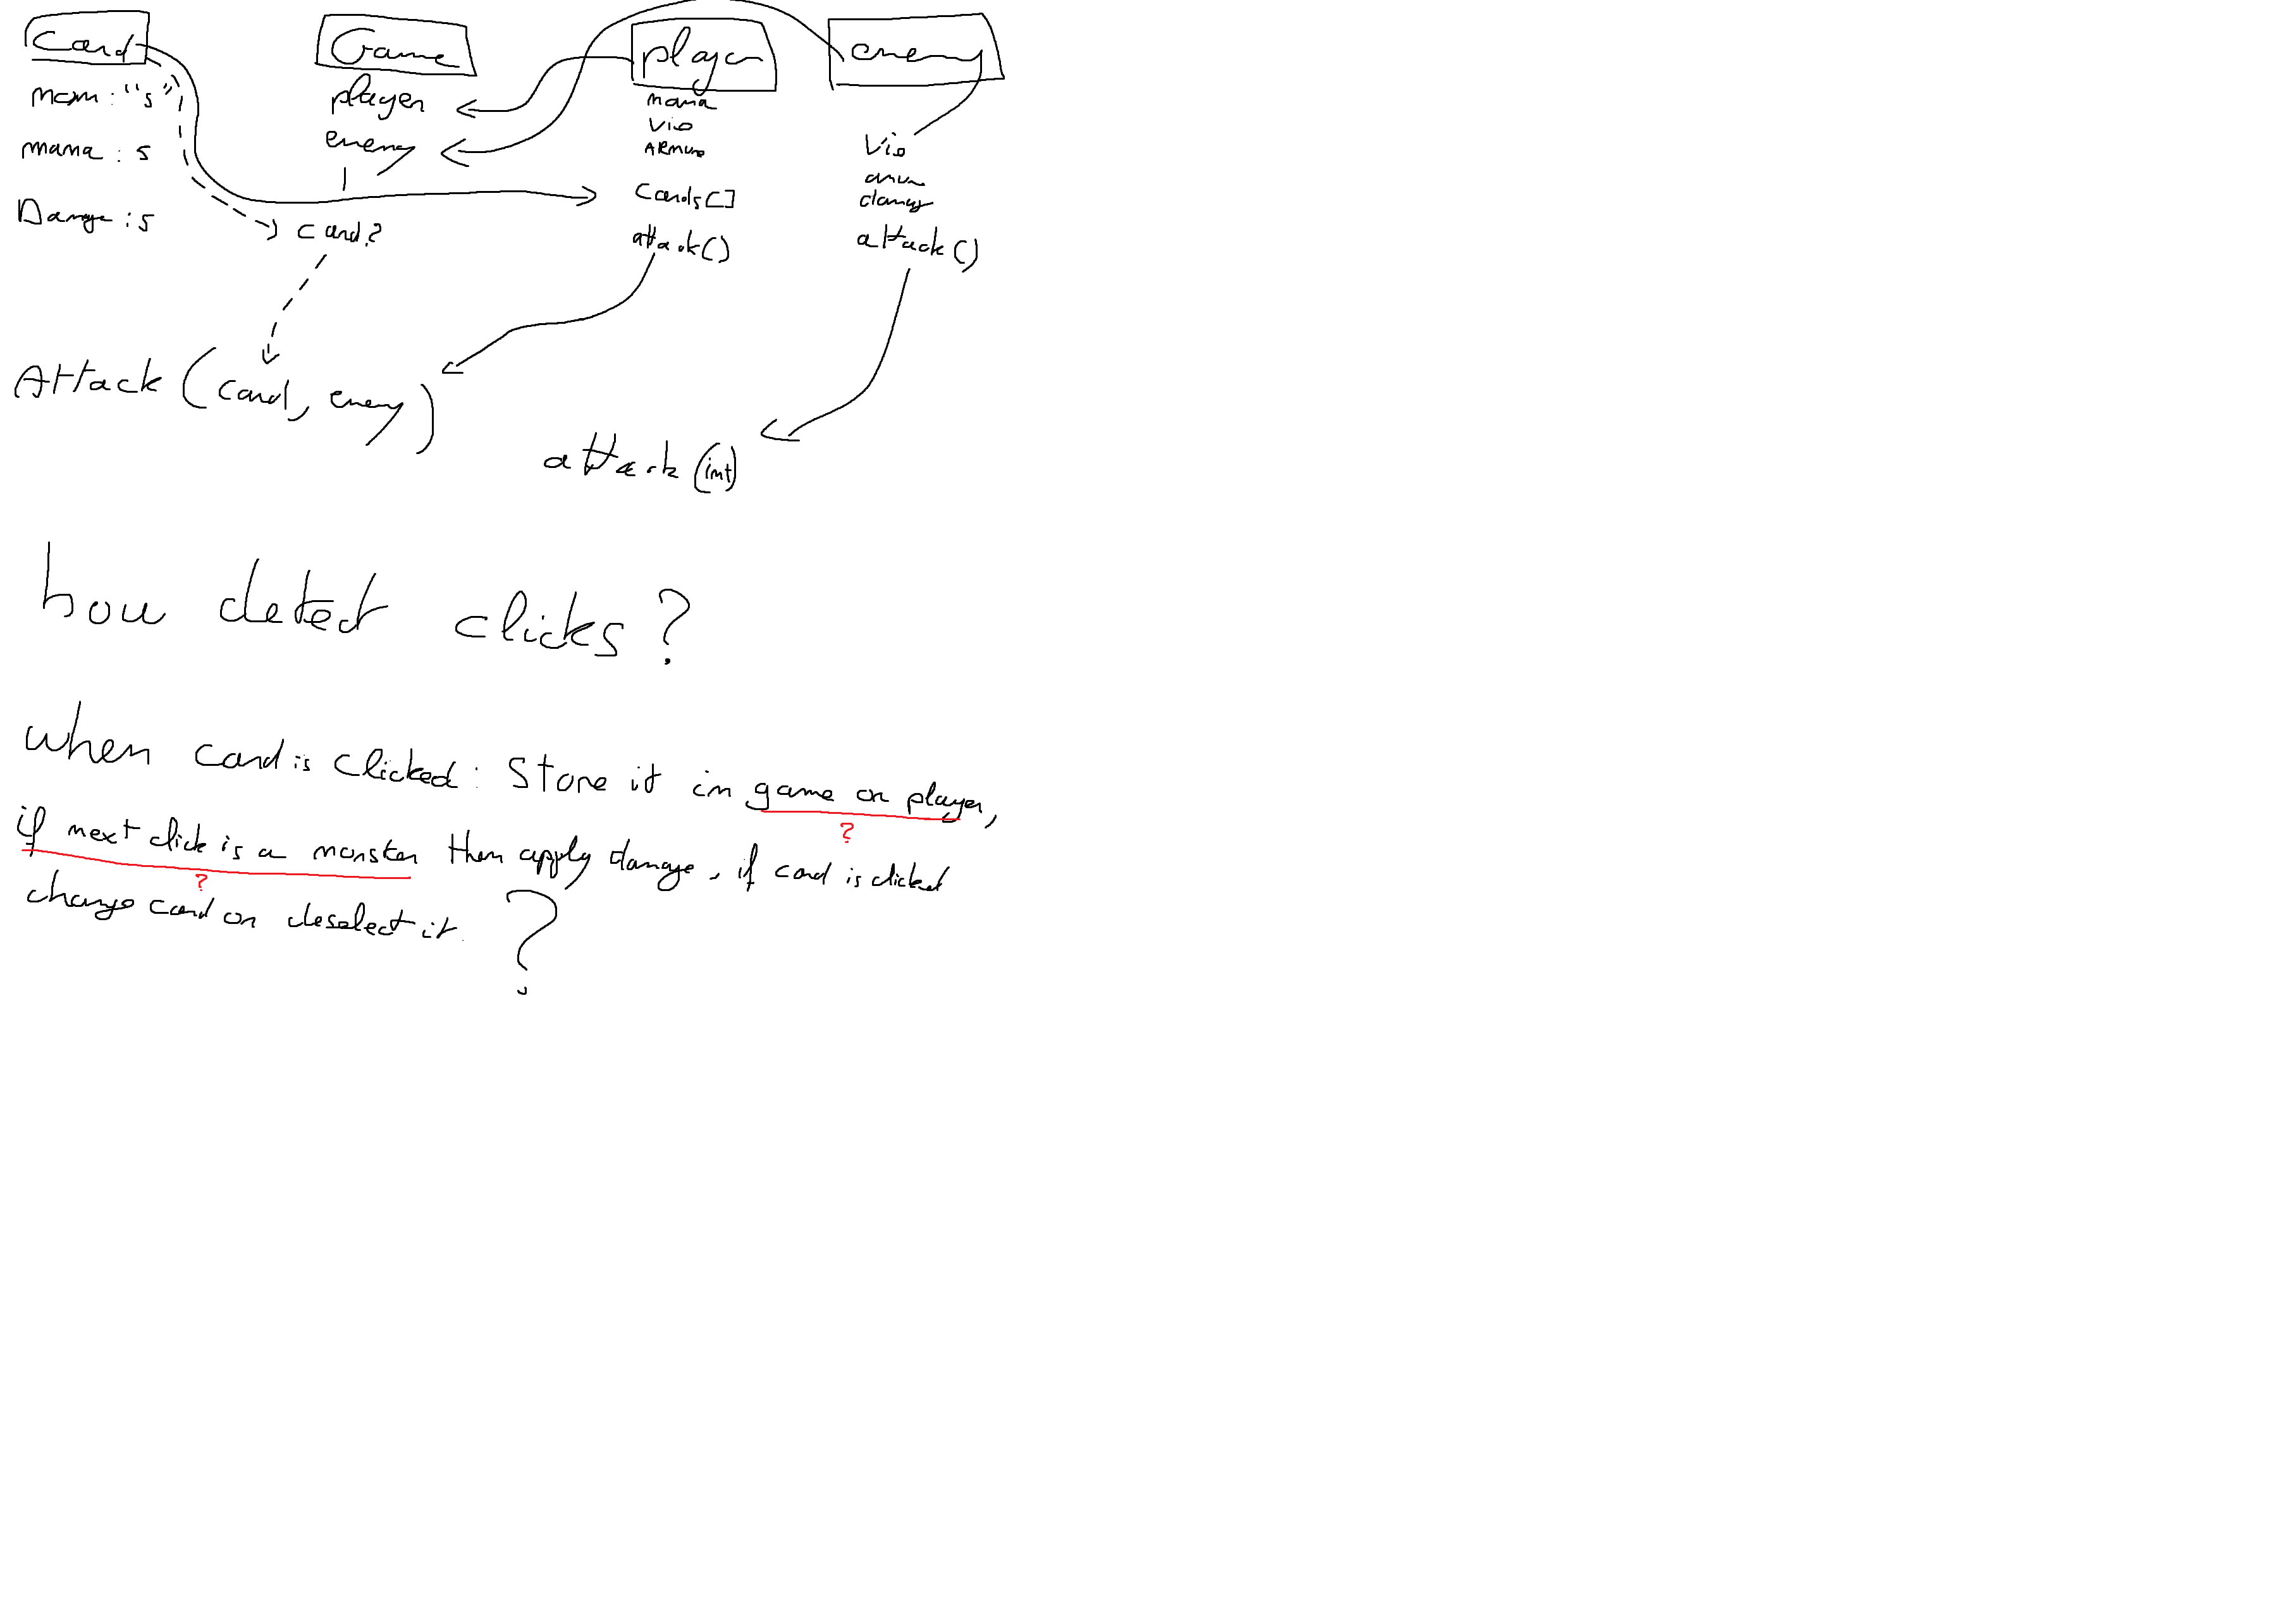 Card
Game
player
enemy
nom : "s"
mana : 5
Damage : 5
player
enemy
card?
mana
Vie
ARmure
Cards[]
attack()
Vie
damage
attack()
Attack (card, enemy)
attack (int)
how detect clicks ?
when card is clicked : Store it in game or player,
?
if next click is a monster then apply damage, if card is clicked
?
change card or deselect it. ?